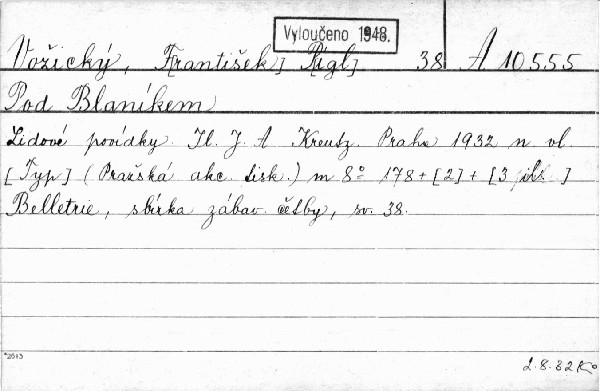 Vyloučeno 1948.
Vožický, F[rantišek] [Rígl] 38 A 10.555
Pod Blaníkem
Lidové povídky. Il. J. A Kreutz. Praha 1932 n. vl
[Typ] (Pražská akc. tisk.) m 8° 178 + [2] + [3 příl.]
Belletrie, sbírka zábav. četby, sv. 38.
*2613
2.8.32 Ko